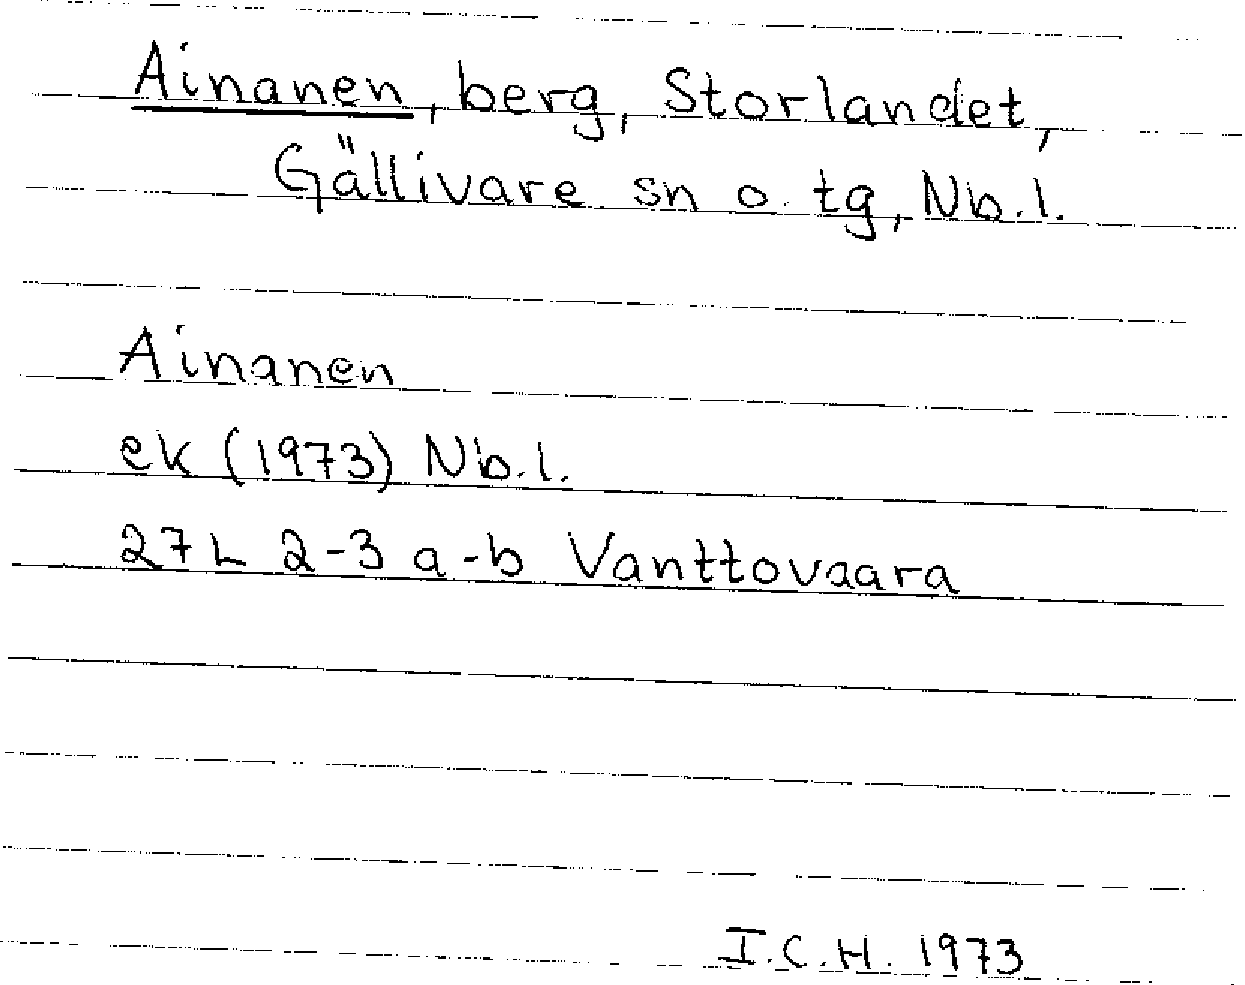 Ainanen, berg, Storlandet,
Gällivare sn o. tg, Nb.l.
Ainanen
ek (1973) Nb.l.
27L 2-3 a-b Vanttovaara
I.C.H. 1973